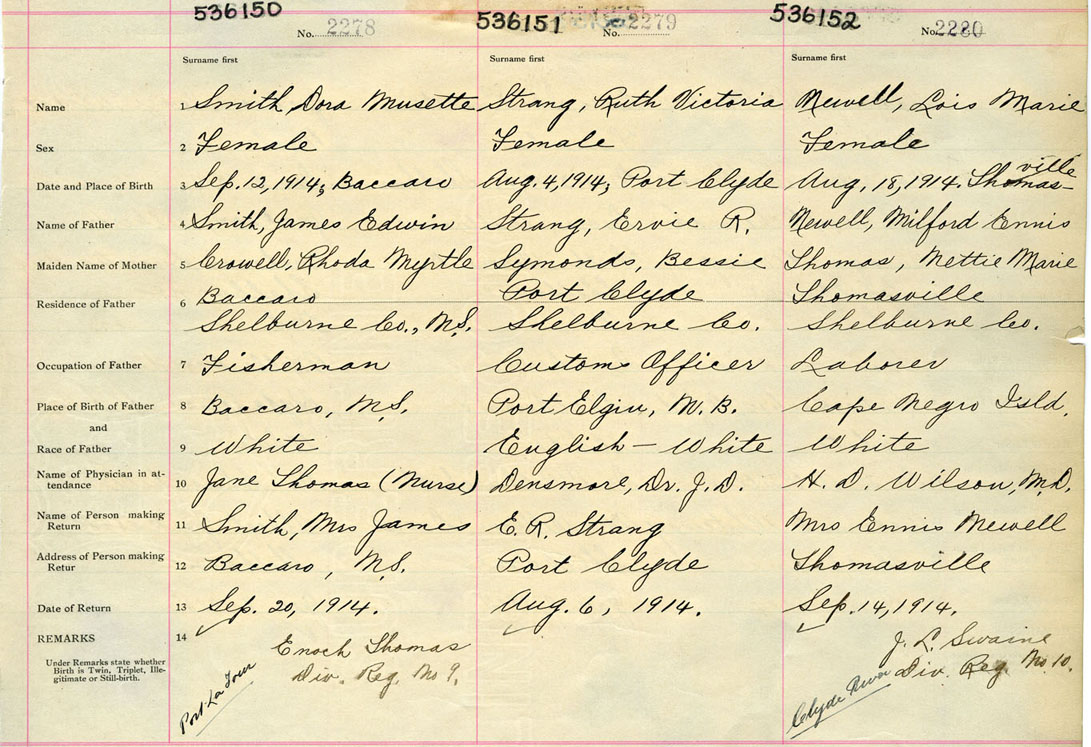 536150 536151 536152
No. 2278 No. 2279 No. 2280
Surname first Surname first Surname first
Name 1 Smith, Dora Musette Strang, Ruth Victoria Newell, Lois Marie
Sex 2 Female Female Female
Date and Place of Birth 3 Sep. 12, 1914, Baccaro Aug. 4, 1914, Port Clyde Aug. 18, 1914. Thomas-ville
Name of Father 4 Smith, James Edwin Strang, Ervie R. Newell, Milford Ennis
Maiden Name of Mother 5 Crowell, Rhoda Myrtle Symonds, Bessie Thomas, Nettie Marie
Residence of Father 6 Baccaro Port Clyde Thomasville
Shelburne Co., N.S. Shelburne Co. Shelburne Co.
Occupation of Father 7 Fisherman Customs Officer Laborer
Place of Birth of Father 8 Baccaro, N.S. Port Elgin, N.B. Cape Negro Isld.
and
Race of Father 9 White English – White White
Name of Physician in at-
tendance 10 Jane Thomas (Nurse) Densmore, Dr. J.D. H. D. Wilson, M.D.
Name of Person making
Return 11 Smith, Mrs James E. R. Strang Mrs Ennis Newell
Address of Person making
Retur 12 Baccaro, N.S. Port Clyde Thomasville
Date of Return 13 Sep. 20, 1914. Aug. 6, 1914. Sep. 14, 1914.
REMARKS 14
Under Remarks state whether
Birth is Twin, Triplet, Ille-
gitimate or Still-birth.
Enoch Thomas J. L. Swaine
Div. Reg. No 9. Div. Reg. No 10.
Port La Tour Clyde River